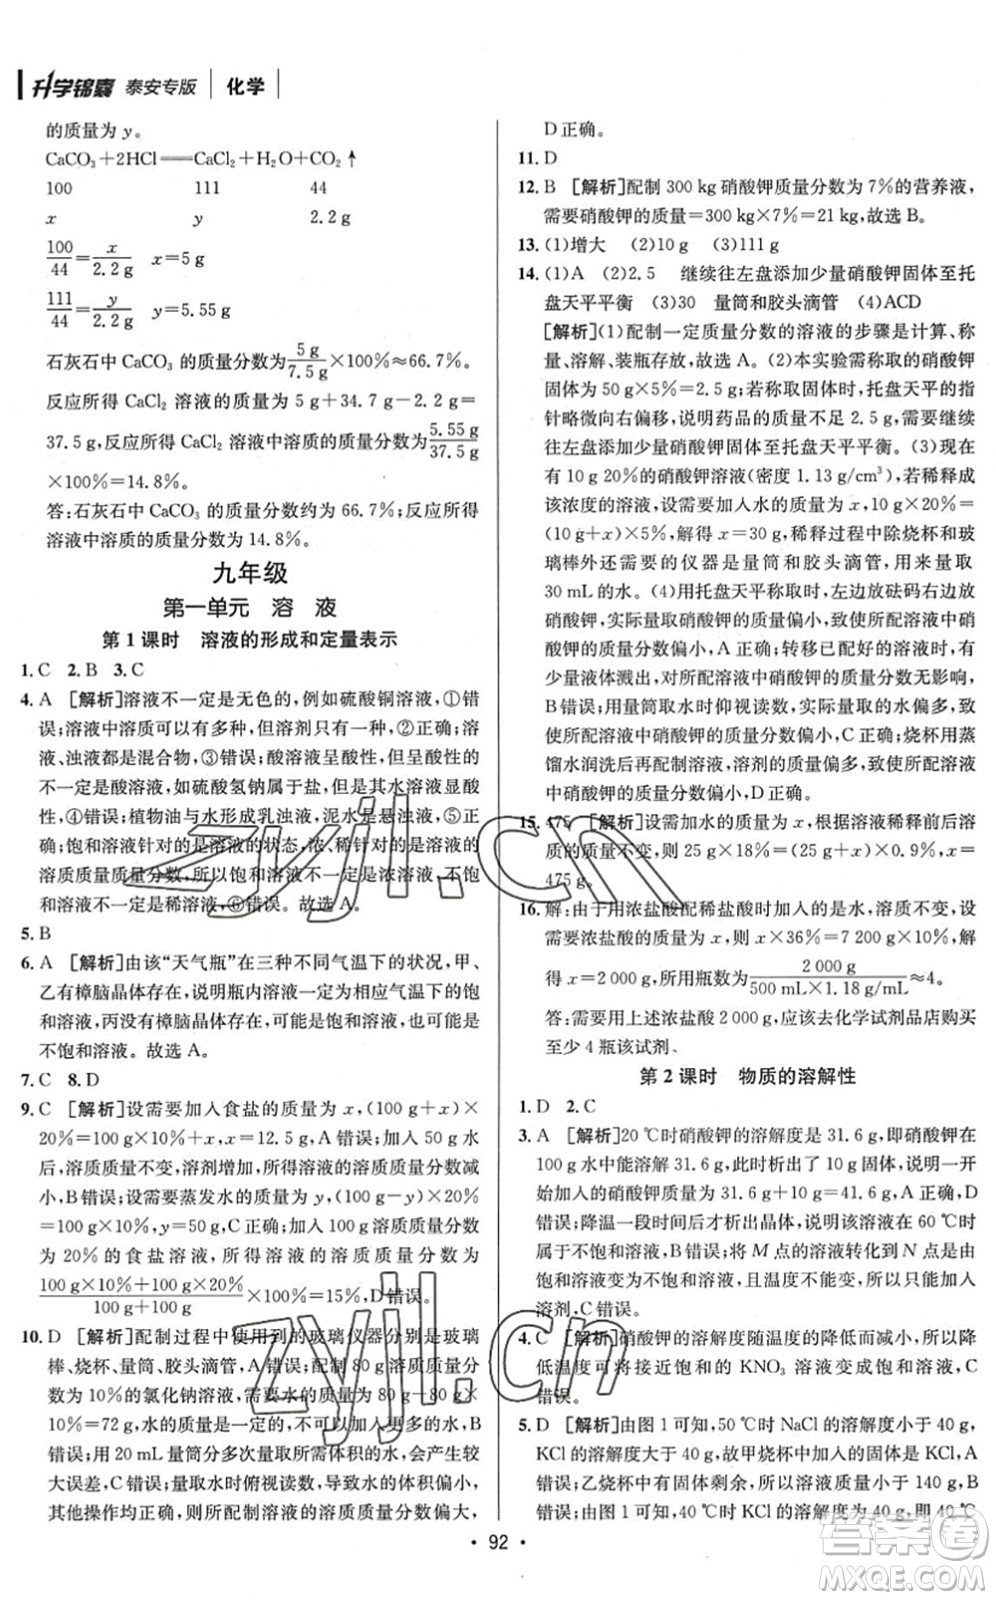 升学锦囊 泰安专版 | 化学 |
的质量为 y。
CaCO₃+2HCl══CaCl₂+H₂O+CO₂↑
100 111 44
x y 2.2 g
100/44=x/2.2 g x=5 g
111/44=y/2.2 g y=5.55 g
石灰石中 CaCO₃ 的质量分数为5 g/7.5 g×100%≈66.7%。
反应所得 CaCl₂ 溶液的质量为 5 g+34.7 g-2.2 g=
37.5 g,反应所得 CaCl₂ 溶液中溶质的质量分数为5.55 g/37.5 g
×100%=14.8%。
答:石灰石中 CaCO₃ 的质量分数约为 66.7%;反应所得
溶液中溶质的质量分数为 14.8%。
九年级
第一单元 溶 液
第 1 课时 溶液的形成和定量表示
1. C 2. B 3. C
4. A [解析]溶液不一定是无色的,例如硫酸铜溶液,①错
误;溶液中溶质可以有多种,但溶剂只有一种,②正确;溶
液、浊液都是混合物,③错误;酸溶液呈酸性,但呈酸性的
不一定是酸溶液,如硫酸氢钠属于盐,但其水溶液显酸
性,④错误;植物油与水形成乳浊液,泥水是悬浊液,⑤正
确;饱和溶液是指溶液的状态,浓、稀是针对溶液的
溶质质量分数,所以饱和溶液不一定是浓溶液,不饱和溶
液不一定是稀溶液,⑥错误。故选 A。
5. B
6. A [解析]由该“天气瓶”在三种不同气温下的状况,甲、
乙有樟脑晶体存在,说明瓶内溶液一定为相应气温下的饱
和溶液,丙没有樟脑晶体存在,可能是饱和溶液,也可能
是不饱和溶液。故选 A。
7. C 8. D
9. C [解析]设需要加入食盐的质量为 x,(100 g+x)×
20%=100 g×10%+x,x=12.5 g,A 错误;加入 50 g 水
后,溶质质量不变,溶剂增加,所得溶液的溶质质量分数减
小,B 错误;设需要蒸发水的质量为 y,(100 g-y)×20%
=100 g×10%,y=50 g,C 正确;加入 100 g 溶质质量分数
为 20% 的食盐溶液,所得溶液的溶质质量分数为
100 g×10%+100 g×20%/100 g+100 g×100%=15%,D 错误。
10. D [解析]配制过程中使用到的玻璃仪器分别是玻璃
棒、烧杯、量筒、胶头滴管,A 错误;配制 80 g 溶质质量分
数为 10%的氯化钠溶液,需要水的质量为 80 g-80 g×
10%=72 g,水的质量是一定的,不可以加入更多的水,B
错误;用 20 mL 量筒分多次量取所需的水,会产生较
大误差,C 错误;量取水时俯视读数,水的体积偏小,
其他操作正确,则所配制溶液的溶质质量分数偏大,
D 正确。
11. D
12. B [解析]配制 300 kg 硝酸钾质量分数为 7%的营养液,
需要硝酸钾的质量=300 kg×7%=21 kg,故选 B。
13. (1)增大 (2)10 g (3)111 g
14. (1)A (2)2.5 继续往左盘添加少量硝酸钾固体至托
盘天平平衡 (3)30 量筒和胶头滴管 (4)ACD
[解析](1)配制一定质量分数的溶液的步骤是计算、称
量、溶解、装瓶存放,故选 A。(2)本实验需称取的硝酸钾
固体为 50 g×5%=2.5 g;若称取固体时,托盘天平的指
针略微向右偏移,说明药品的质量不足 2.5 g,需要继续
往左盘添加少量硝酸钾固体至托盘天平平衡。(3)现在
有 10 g 20%的硝酸钾溶液(密度 1.13 g/cm³),若稀释成
该浓度的溶液,设需要加入水的质量为 x,10 g×20%=
(10 g+x)×5%,解得 x=30 g,稀释过程中除烧杯和玻
璃棒外还需要的仪器是量筒和胶头滴管,需要加入
30 mL的水。(4)用托盘天平称取时,左边放砝码右边放
硝酸钾,实际量取硝酸钾的质量偏小,使所配溶液中硝酸
钾质量分数偏小,A 正确;转移已配好的溶液时,有
少量液体溅出,对所配溶液中硝酸钾的质量分数无影响,
B 错误;用量筒取水时仰视读数,实际量取的水偏多,致
使所配溶液中硝酸钾的质量分数偏小,C 正确;烧杯用蒸
馏水润洗后再配制溶液,溶剂的质量偏多,致使所配溶液
中硝酸钾的质量分数偏小,D 正确。
15. 475 [解析]设需加水的质量为 x,根据溶液稀释前后溶
质的质量不变,25 g×18%=(25 g+x)×0.9%,x=
475 g。
16. 解:由于用浓盐酸配稀盐酸时加入的是水,溶质不变,设
需要浓盐酸的质量为 x,则 x×36%=7 200 g×10%,解
得 x=2 000 g,所用瓶数为2 000 g/500 mL×1.18 g/mL≈4。
答:需要用上述浓盐酸 2 000 g,应该去化学试剂品店购买
至少 4 瓶该试剂。
第 2 课时 物质的溶解性
1. D 2. C
3. A [解析]20 ℃时硝酸钾的溶解度是 31.6 g,即硝酸钾在
100 g 水中能溶解 31.6 g,此时析出了 10 g 固体,说明一开
始加入的硝酸钾质量为 31.6 g+10 g=41.6 g,A 正确,D
错误;降温一段时间后才析出晶体,说明该溶液在 60 ℃时
属于不饱和溶液,B 错误;将 M 点的溶液转化到 N 点,是由
饱和溶液变为不饱和溶液,所以温度不能变,只能加入
溶剂,C 错误。
4. C [解析]硝酸钾的溶解度随温度的降低而减小,所以降
低温度可将接近饱和的 KNO₃ 溶液变成饱和溶液,C
错误。
5. D [解析]由图 1 可知,50 ℃时 NaCl 的溶解度小于 40 g,
KCl 的溶解度大于 40 g,故甲烧杯中加入的固体是 KCl,A
错误;乙烧杯中有固体剩余,所以溶液质量小于 140 g,B
错误;由图 1 可知,40 ℃时 KCl 的溶解度为 40 g,即 40 ℃
• 92 •
zyjl.cn
zyjl.cn
答案圈
MXQE.COM